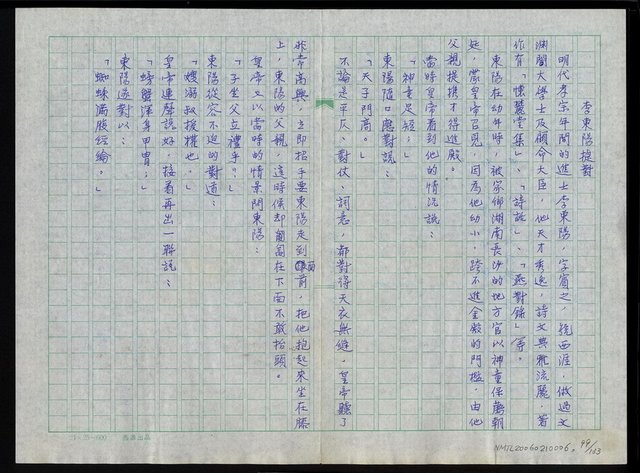 李東陽捷對
明代孝宗年間的進士李東陽，字賓之，號西涯，做過文
淵閣大學士及顧命大臣，他天才秀逸，詩文典雅流麗，著
作有「懷麓堂集」、「詩話」、「燕對錄」等。
東陽在幼年時，被家鄉湖南長沙的地方官以神童保薦朝
廷，蒙皇帝召見，因為他幼小，跨不進金殿的門檻，由他
父親提携才得進殿。
當時皇帝看到他的情況說：
「神童足短；」
東陽隨口應對說：
「天子門高。」
不論是平仄、對仗、詞意，都對得天衣無縫，皇帝聽了
非常高興，立即招手要東陽走到面前，把他抱起來坐在膝
上，東陽的父親，這時候却匍匐在下面不敢抬頭。
皇帝又以當時的情景問東陽：
「子坐父立禮乎？」
東陽從容不迫的對道：
「嫂溺叔援權也。」
皇帝連聲說好，接着再出一聯說：
「螃蟹渾身甲冑；」
東陽遂對以：
「蜘蛛滿腹經綸。」
21×25=600
NMTL20060210006.
99/103